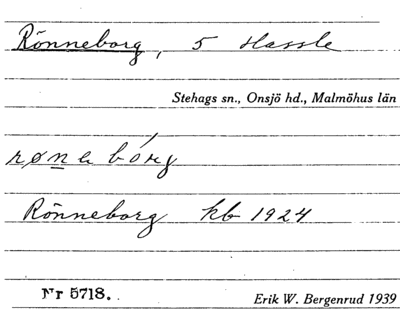 Rönneborg, 5 Hassle
Stehags sn., Onsjö hd., Malmöhus län
rønebórg
Rönneborg kb 1924
Nr 5718.
Erik W. Bergenrud 1939